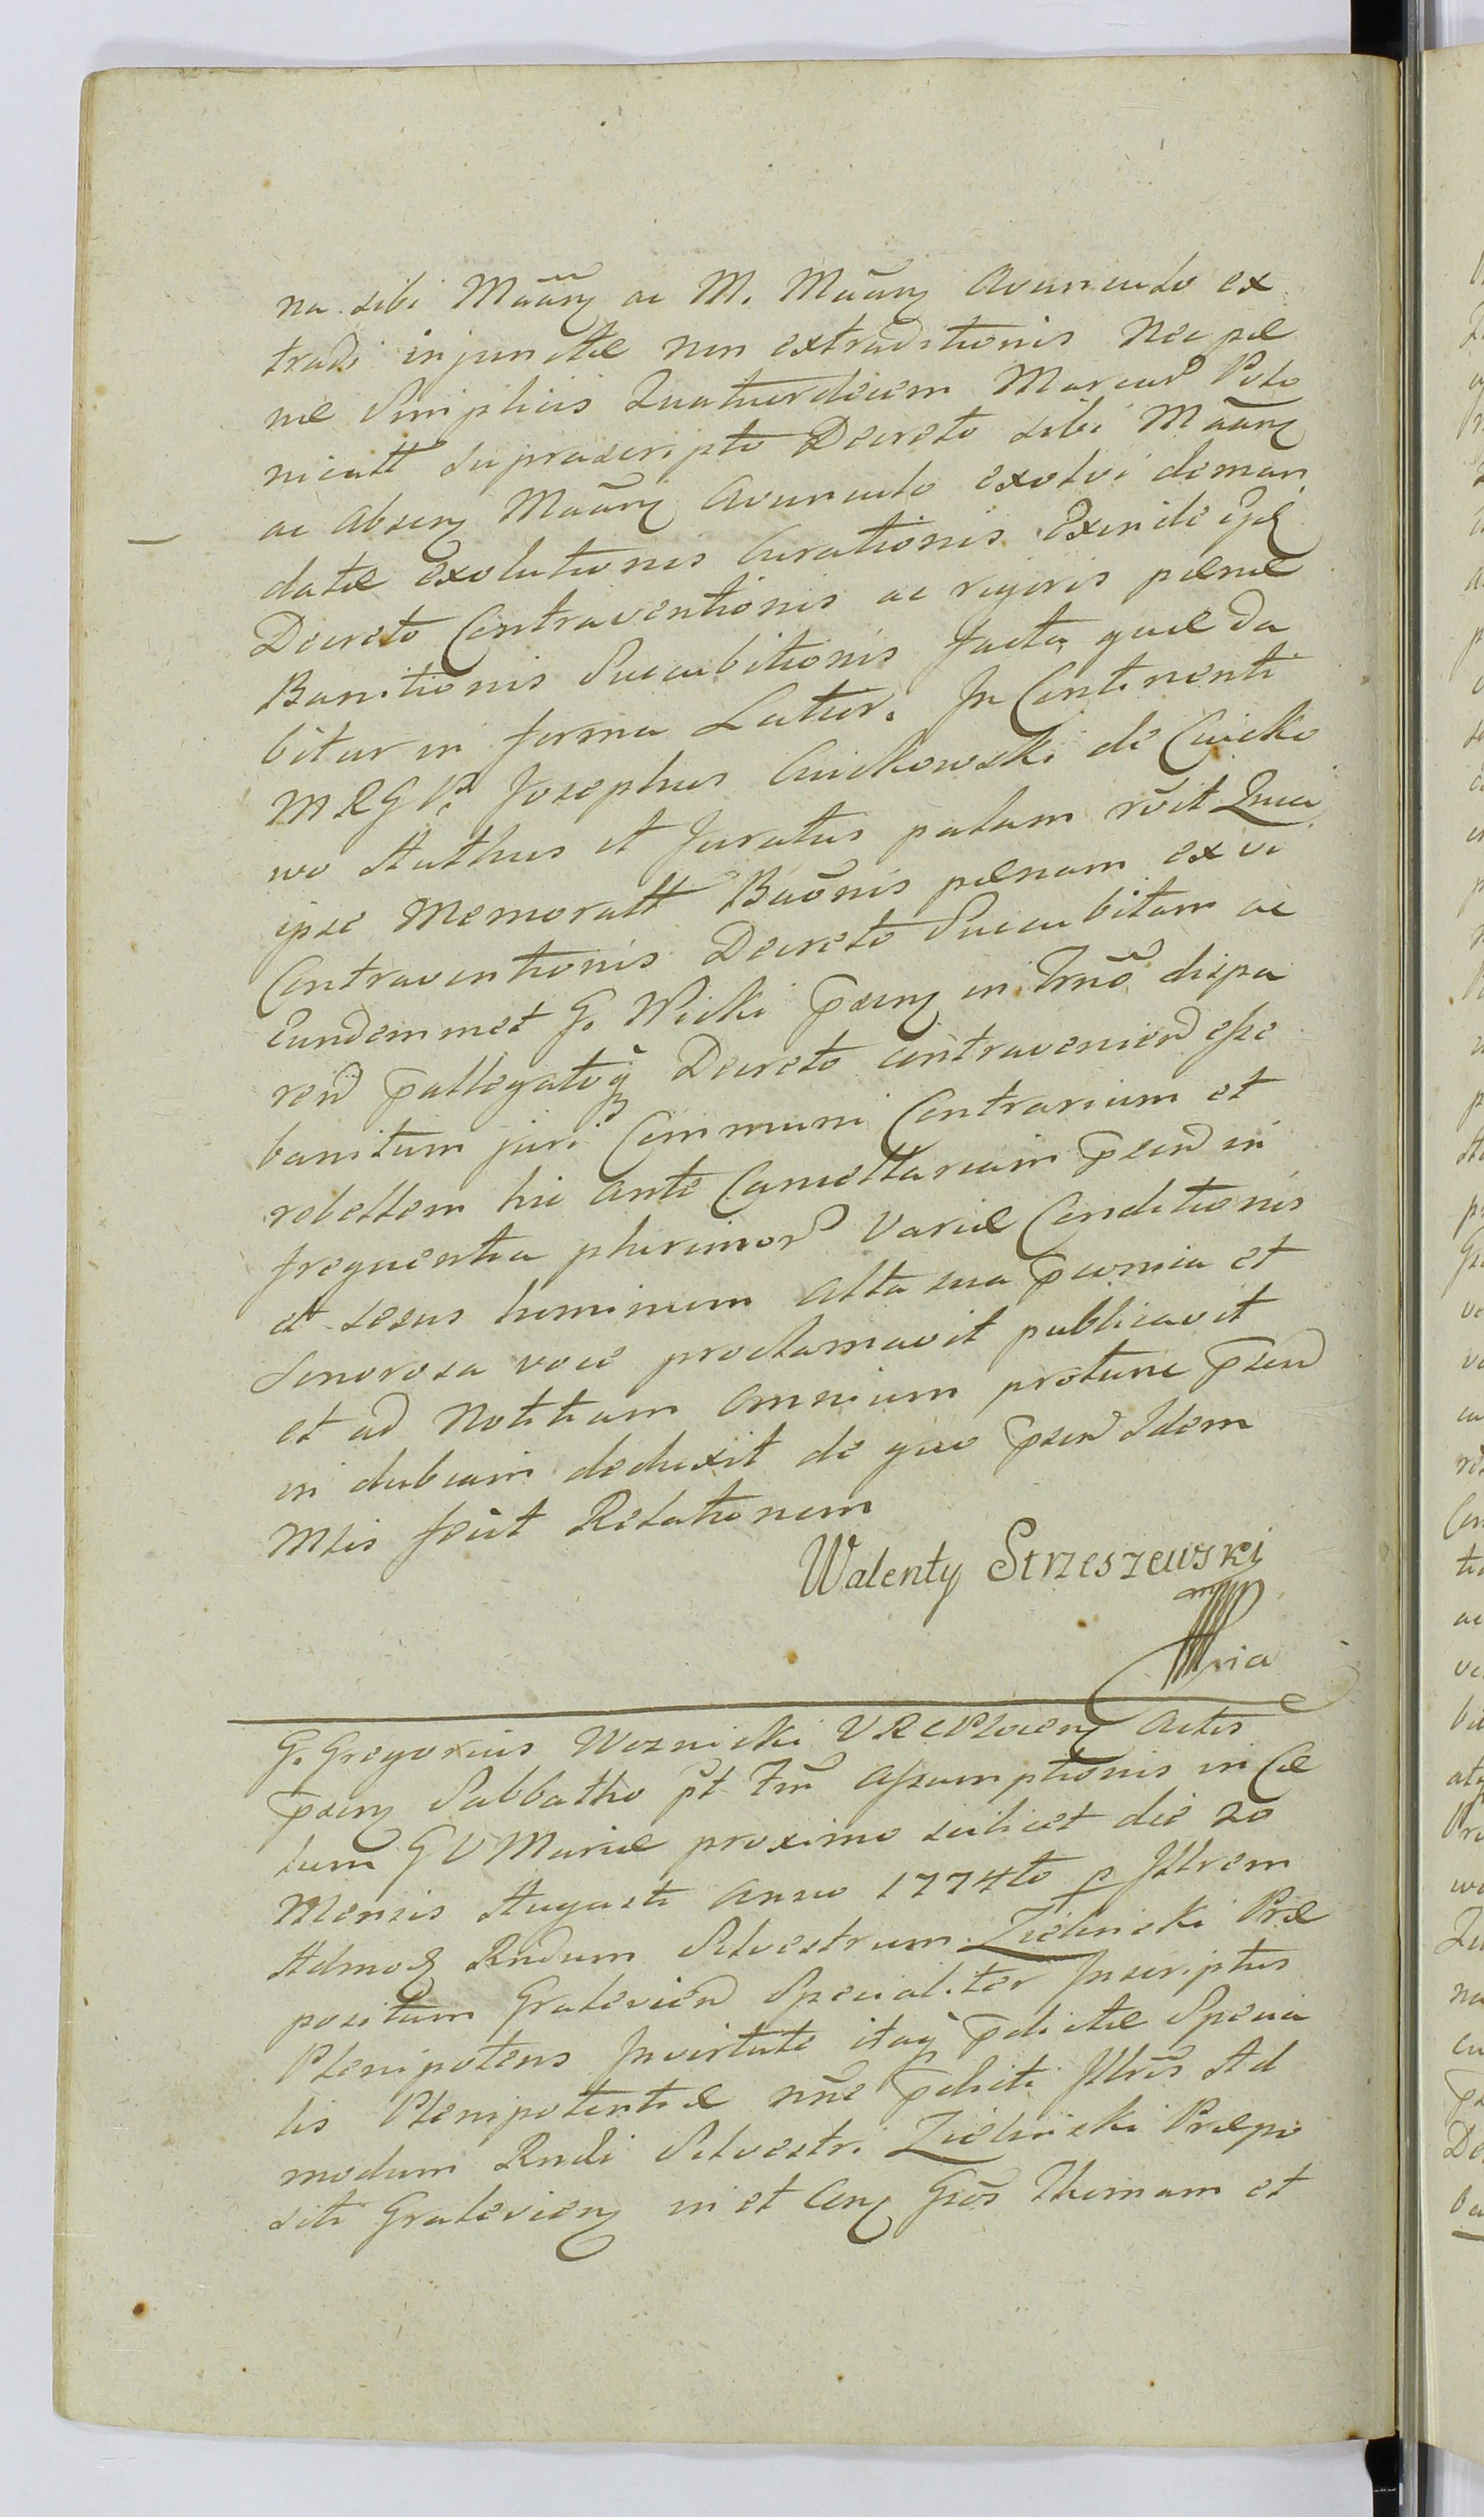 na sibi Mããrȩ ac M. Mããrȩ Avunculo ex
tradi injunctæ non extraditionis nec pœ
næ Simplicis Quatuordecim Marcar Polo
nicall suprascripto Decreto sibi Mããrȩ
ac absen Mããrȩ Avunculo exolvi deman
datæ exolutionis Curationis exinde
Decreto Contraventionis ac rigoris pœnæ
Banitionis Succubitionis facta, quæ da
bitur in forma Latior. In Continenti
M R G Pe Josephus Cwickowski de Cwicko
wo Authus et Juratus palam rvit Quia
ipse Memorall Baõnis pœnam ex vi
Contraventionis Decreto Succubitam ac
Eundemmet G. Wicki p̄sen in Trnõ dispa
ren̄d p̄allegatoq̃ Decreto contraveniend esse
banitum juri Communi Contrarium et
rebellem hic ante Cancellariam p̄sen in
frequentia plurimor Variæ Conditionis
et sexus hominum alta sua p̄conia et
Sonorosa voce proclamavit publicavit
et ad Notitiam omnium protunc p̄sen
in dubiam deduxit de quo p̄sen Idem
Mlis fecit Relationem
Walenty Strzeszewski
mp
G. Gregorius Woznicki V R C Plocen Actis
p̄sen Sabbatho pt Fm Assumptionis in Cæ
lum G V Mariæ proximo scilicet die 20
Mensis Augusti Anno 1774to p Illrem
Admoꝫ Rndum Silvestrum Zielinski Præ
positum Gralevien Specialiter Inscriptus
Plenipotens In virtute itaq̃ p̄dictæ Specia
lis Plenipotentiæ nñe p̄dicti Illris Ad
modum Rndi Silvestri Zielinski Præpo
siti Gralevien in et con Gsos Thomam et